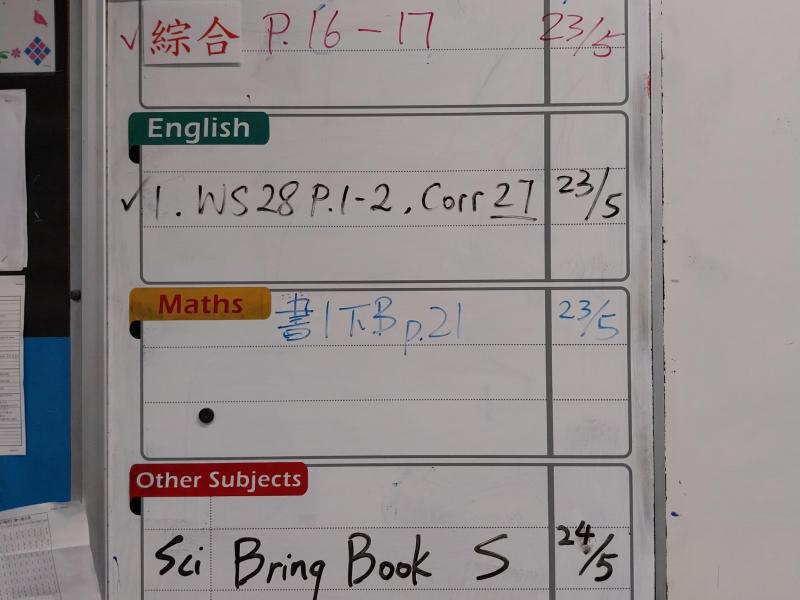 ✓ 綜合 P.16-17 23/5
English
✓ 1. WS 28 P.1-2, Corr 27 23/5
Maths 書1下B p.21 23/5
Other Subjects
Sci Bring Book S 24/5